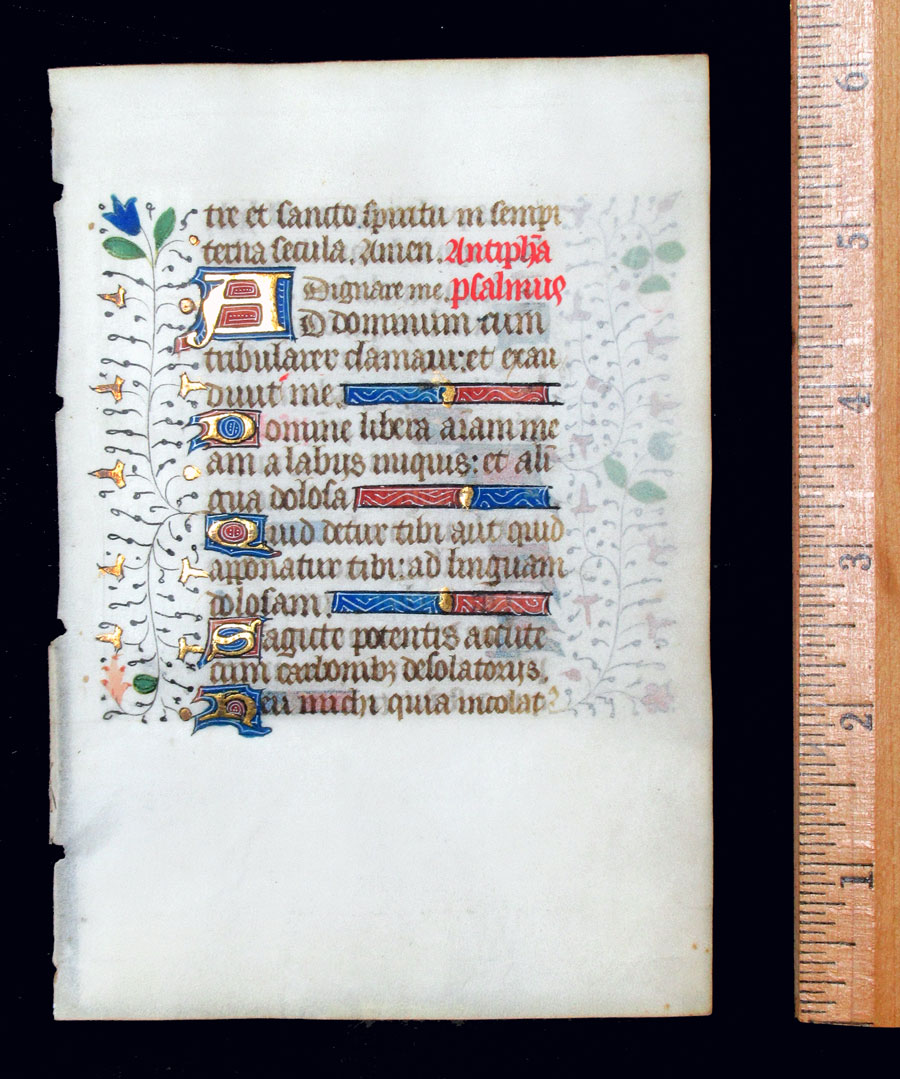 tre et sancto spiritu in sempi
terna secula. Amen. Antiph̃a
Dignare me. psalmus
AD dominum cum
tribularer clamaui: et exau
diuit me
Domine libera aĩam me
am a labijs iniquis: et a lin
gua dolosa
Quid detur tibi aut quid
apponatur tibi: ad linguam
dolosam.
Sagitte potentis accute
cum carbonibꝫ desolatorijs.
Heu michi quia incolatꝰ
6
5
4
3
2
1